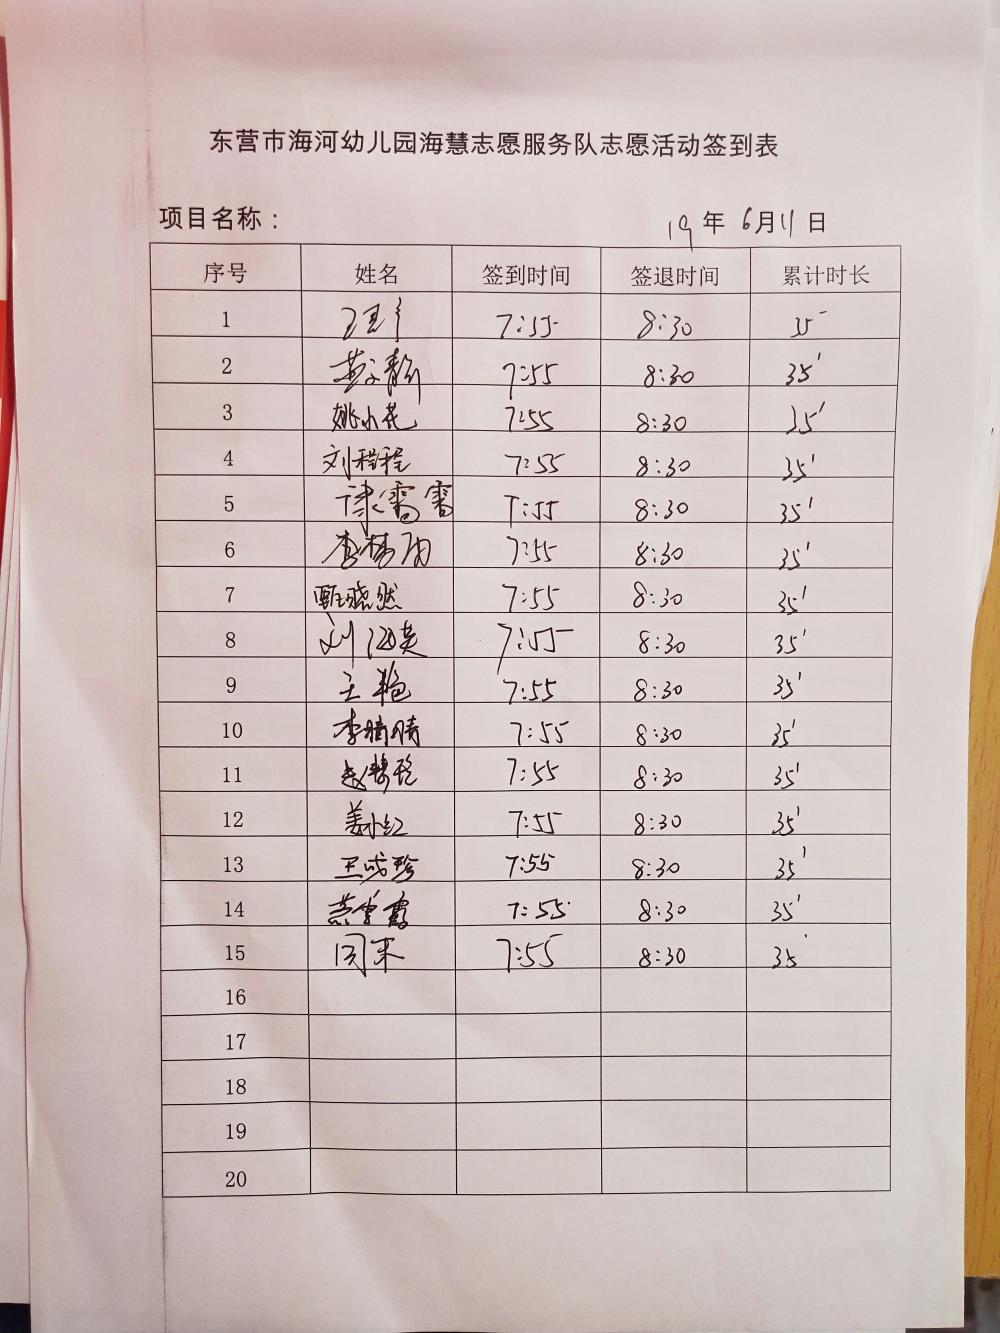 东营市海河幼儿园海慧志愿服务队志愿活动签到表
项目名称： 19年 6月11日
序号 姓名 签到时间 签退时间 累计时长
1 7:55 8:30 35'
2 7:55 8:30 35'
3 姚小花 7:55 8:30 35'
4 刘程程 7:55 8:30 35'
5 7:55 8:30 35'
6 7:55 8:30 35'
7 甄晓然 7:55 8:30 35'
8 7:55 8:30 35'
9 王艳 7:55 8:30 35'
10 李晴晴 7:55 8:30 35'
11 7:55 8:30 35'
12 姜小红 7:55 8:30 35'
13 7:55 8:30 35'
14 7:55 8:30 35'
15 周来 7:55 8:30 35'
16
17
18
19
20